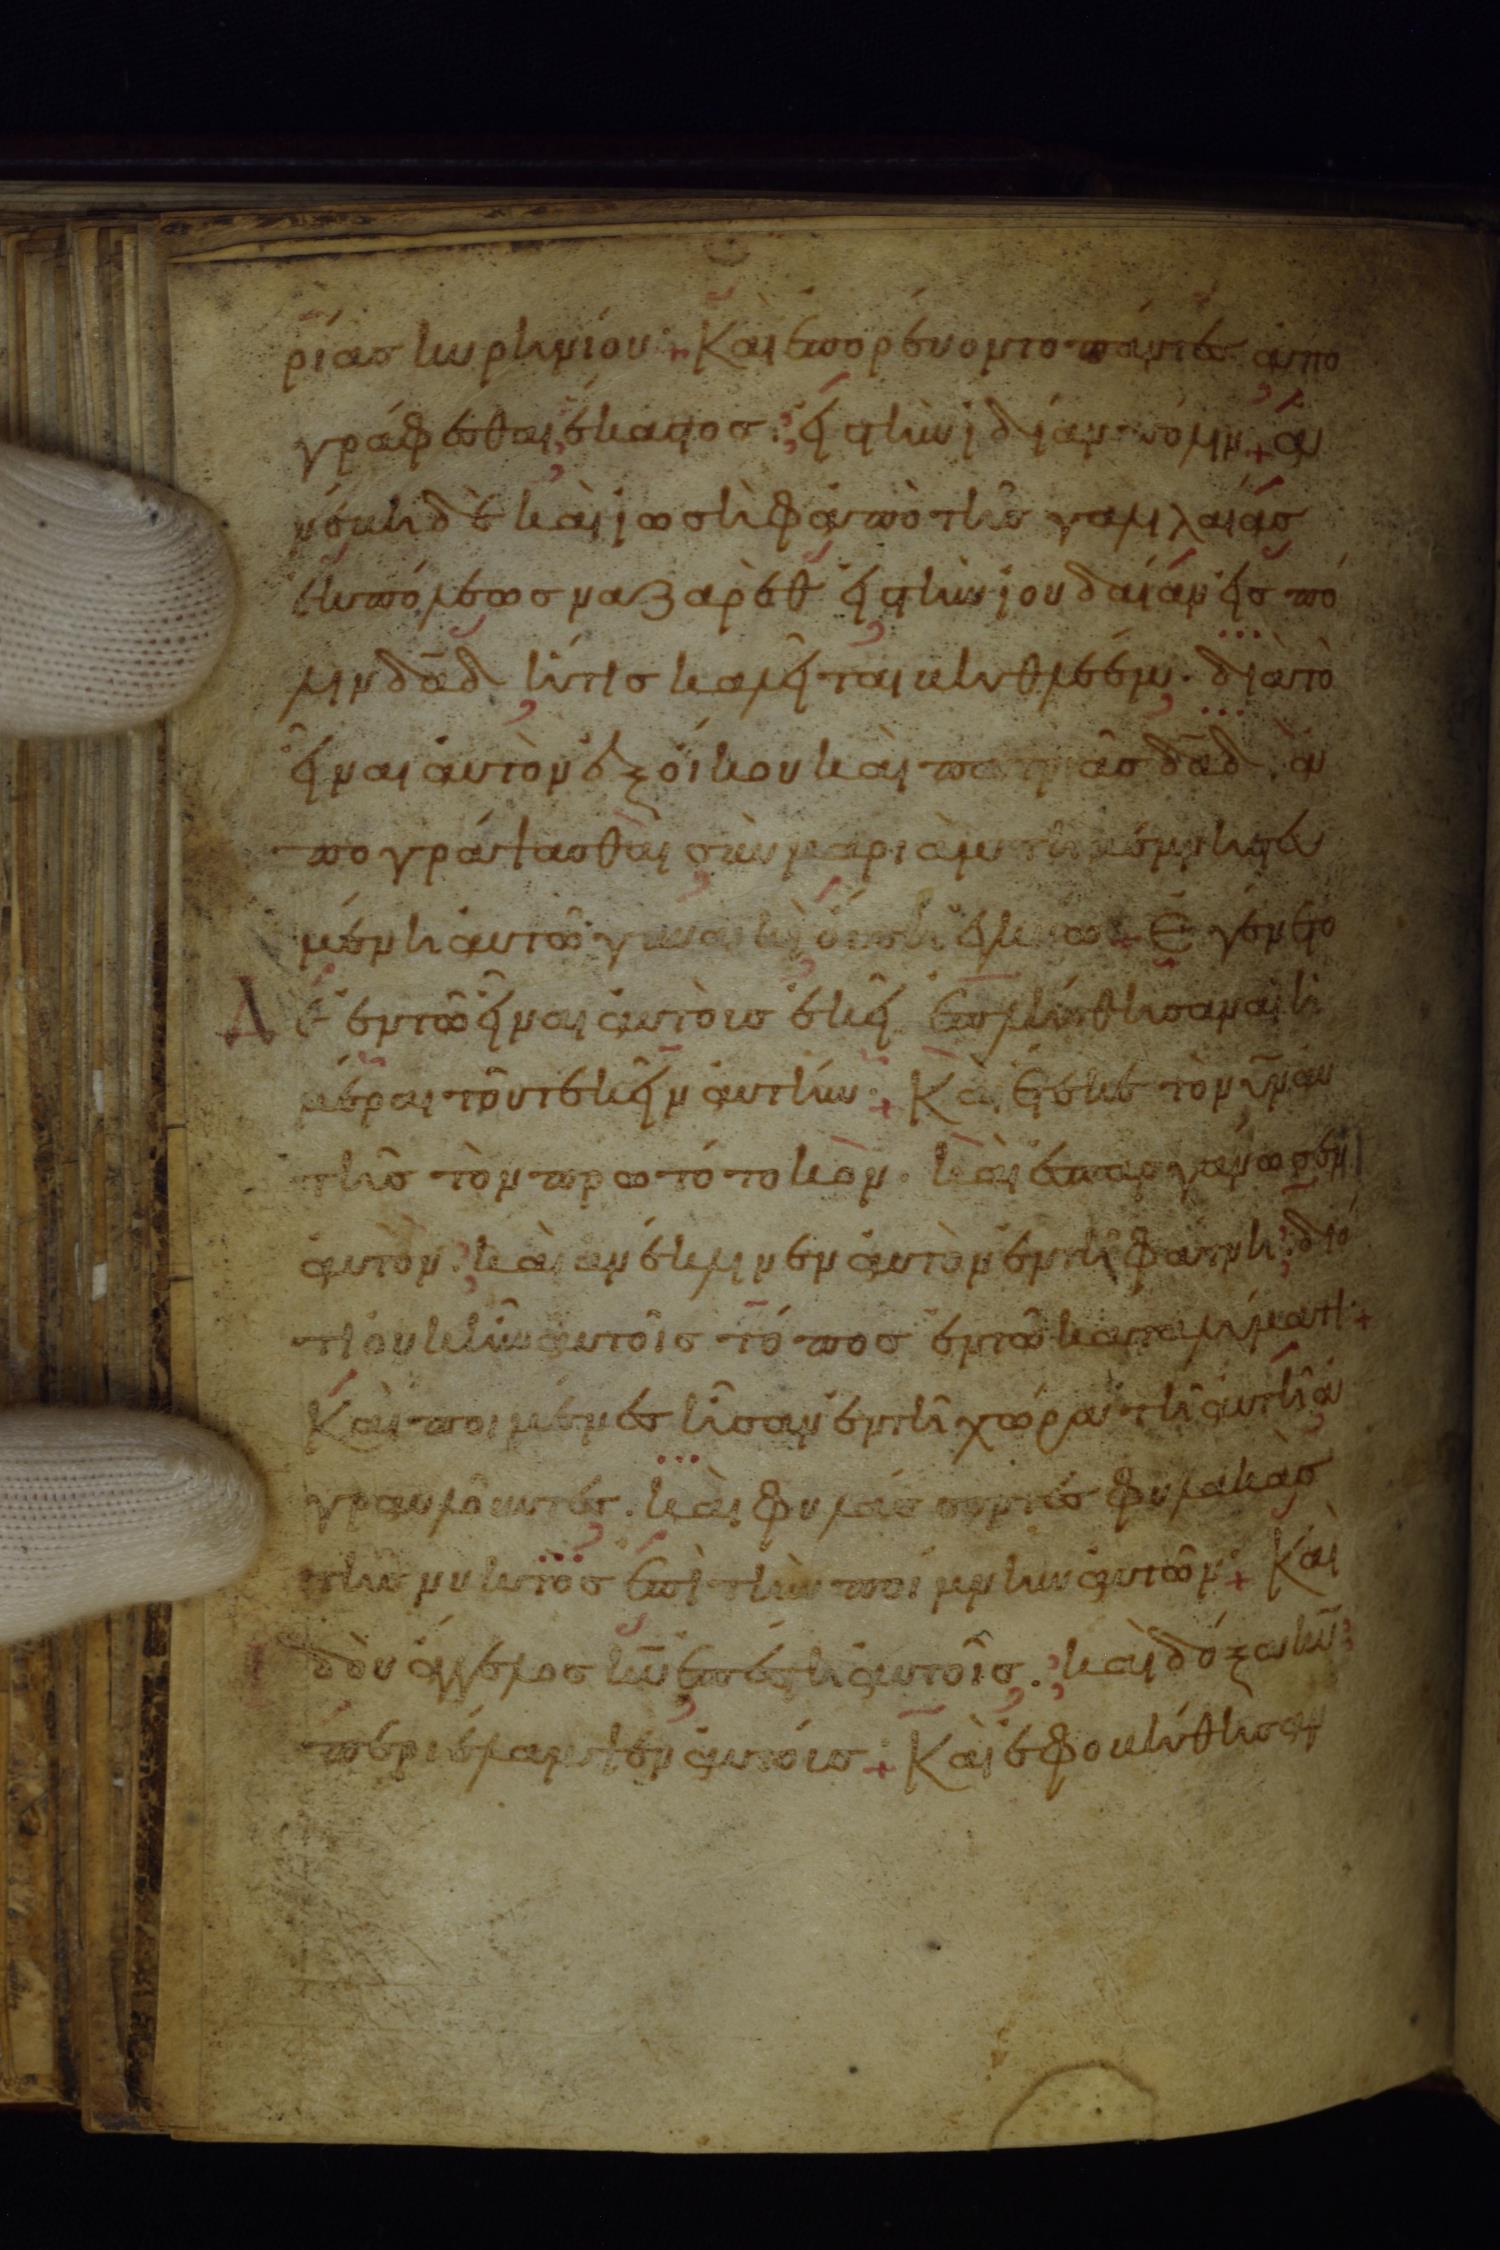 ρίας κυρηνίου· Καὶ ἐπορεύοντο πάντες ἀπο
γράφεσθαι ἕκαστος· εἰς τὴν ἰδίαν πόλιν + ἀ
νέβη δὲ καὶ ἰωσὴφ ἀπὸ τῆς γαλιλαίας
ἐκ πόλεως ναζαρὲθ εἰς τὴν ἰουδαίαν εἰς πό
λιν δᾱδ ἥτις καλεῖται βηθλεέμ· διὰ τὸ
εἶναι αὐτὸν ἐξ οἴκου καὶ πατριᾶς δᾱδ· ἀ
πογράψασθαι σὺν μαριὰμ τῇ μεμνηστευ
μένῃ αὐτῷ γυναικὶ οὔσῃ ἐγκύω + Ἐγένετο
Δ ἐ ἐν τῷ εἶναι αὐτοὺς ἐκεῖ ἐπλήσθησαν αἱ ἡ
μέραι τοῦ τεκεῖν αὐτήν + Καὶ ἔτεκε τὸν ῡν αὐ
τῆς τὸν πρωτότοκον· καὶ ἐσπαργάνωσεν
αὐτὸν· καὶ ἀνέκλινεν αὐτὸν ἐν τῇ φάτνῃ· διό
τι οὐκ ἦν αὐτοῖς τόπος ἐν τῷ καταλύματι +
Καὶ ποιμένες ἦσαν ἐν τῇ χώρα τῇ αὐτῇ ἀ
γραυλοῦντες· καὶ φυλάσσοντες φυλακὰς
τῆς νυκτὸς ἐπὶ τὴν ποίμνην αὐτῶν + Καὶ
Ἰδοὺ ἄγγελος κ̄ῡ ἐπέστη αὐτοῖς· καὶ δόξα κ̄ῡ
περιέλαμψεν αὐτούς + Καὶ ἐφοβήθησαν